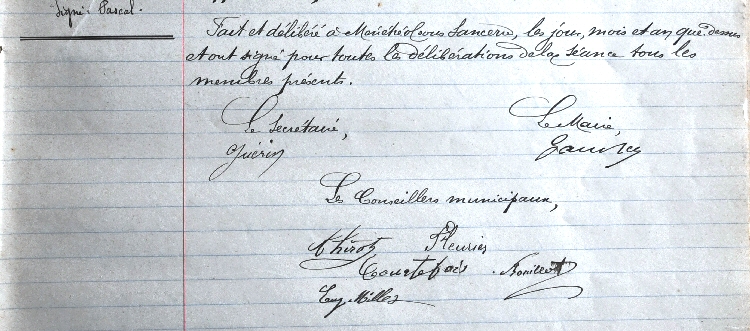 Signé: Pascal.
Fait et délibéré à Menétréol sous Sancerre, les jour, mois et an que dessus
et ont signé pour toutes les délibérations de la séance tous les
membres présents.
Le Secrétaire,
Guérin
Le Maire,
Les Conseillers municipaux,
Thirot Fleuriet
Courtefois
Eug. Millet